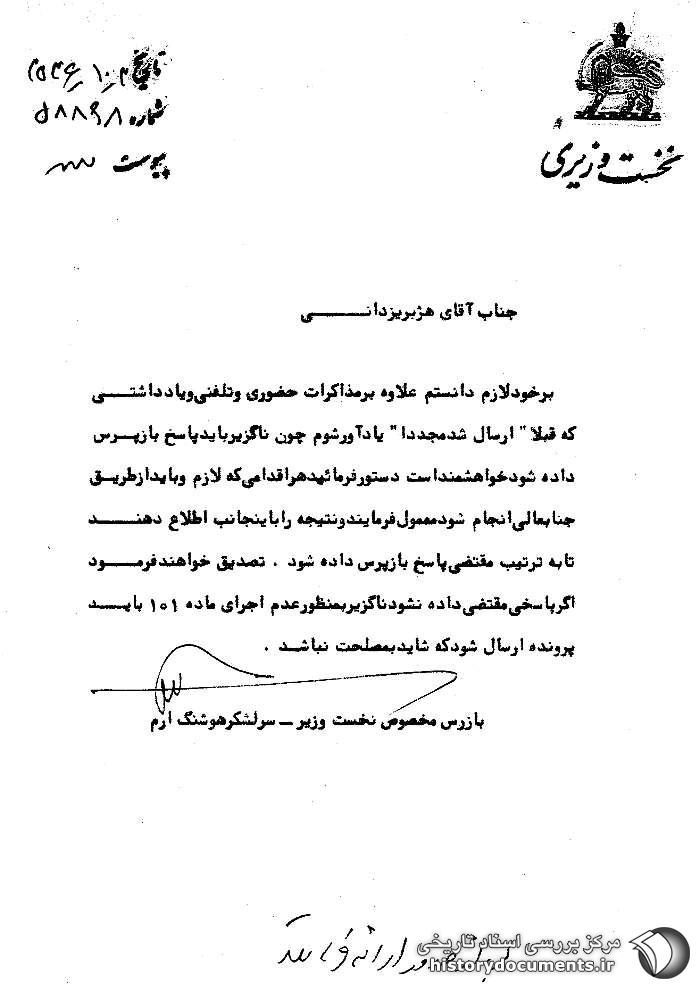 نخست وزیری
تاریخ ۲٫ ۱۰٫ ۲۵۳۶
شماره ۵۸۸۹۸
پیوست
جناب آقای هژبریزدانـــــــی
برخودلازم دانستم علاوه برمذاکرات حضوری وتلفنی ویادداشتـــی
که قبلا" ارسال شدمجددا" یادآورشوم چون ناگزیربایدپاسخ بازپـرس
داده شودخواهشمنداست دستورفرمائیدهراقدامی که لازم وبایدازطریق
جنابعالی انجام شودمعمول فرمایندونتیجه رابااینجانب اطلاع دهنـــد
تابه ترتیب مقتضی پاسخ بازپرس داده شود . تصدیق خواهندفرمـــود
اگرپاسخی مقتضی داده نشودناگزیربمنظورعدم اجرای ماده ۱۰۱ بایـــد
پرونده ارسال شودکه شایدبمصلحت نباشـد .
بازرس مخصوص نخست وزیر ــ سرلشکرهوشنگ ارم
مرکز بررسی اسناد تاریخی
historydocuments.ir